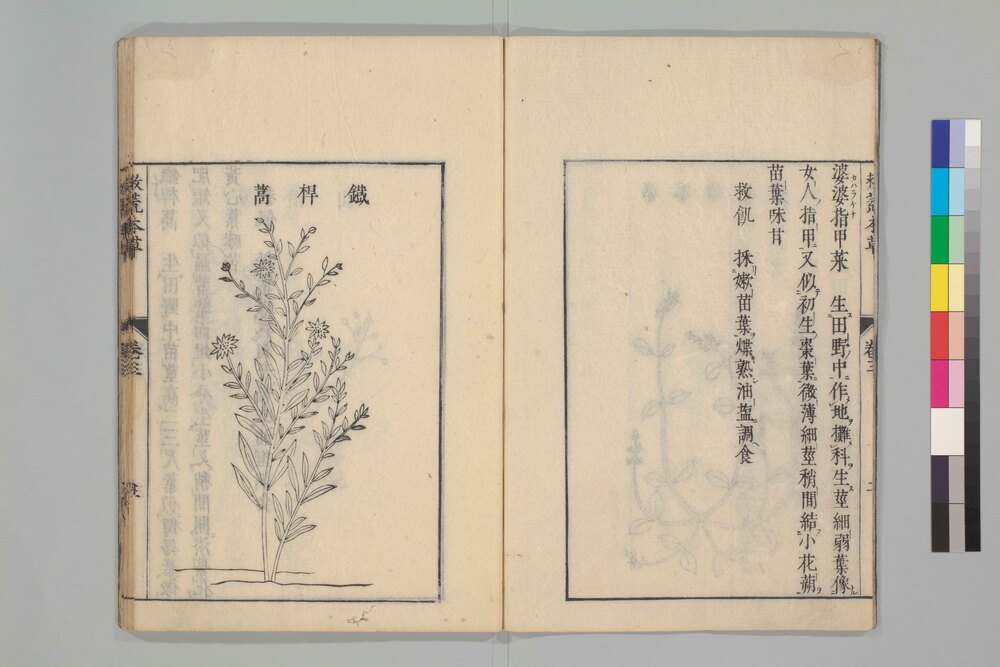 婆婆指甲菜 生田野中作地攤科生莖細弱葉像
女人指甲又似初生棗葉微薄細莖稍間結小花蒴
苗葉味甘
救飢 採嫩苗葉煠熟油盬調食
鐵桿蒿
救荒本草
卷三